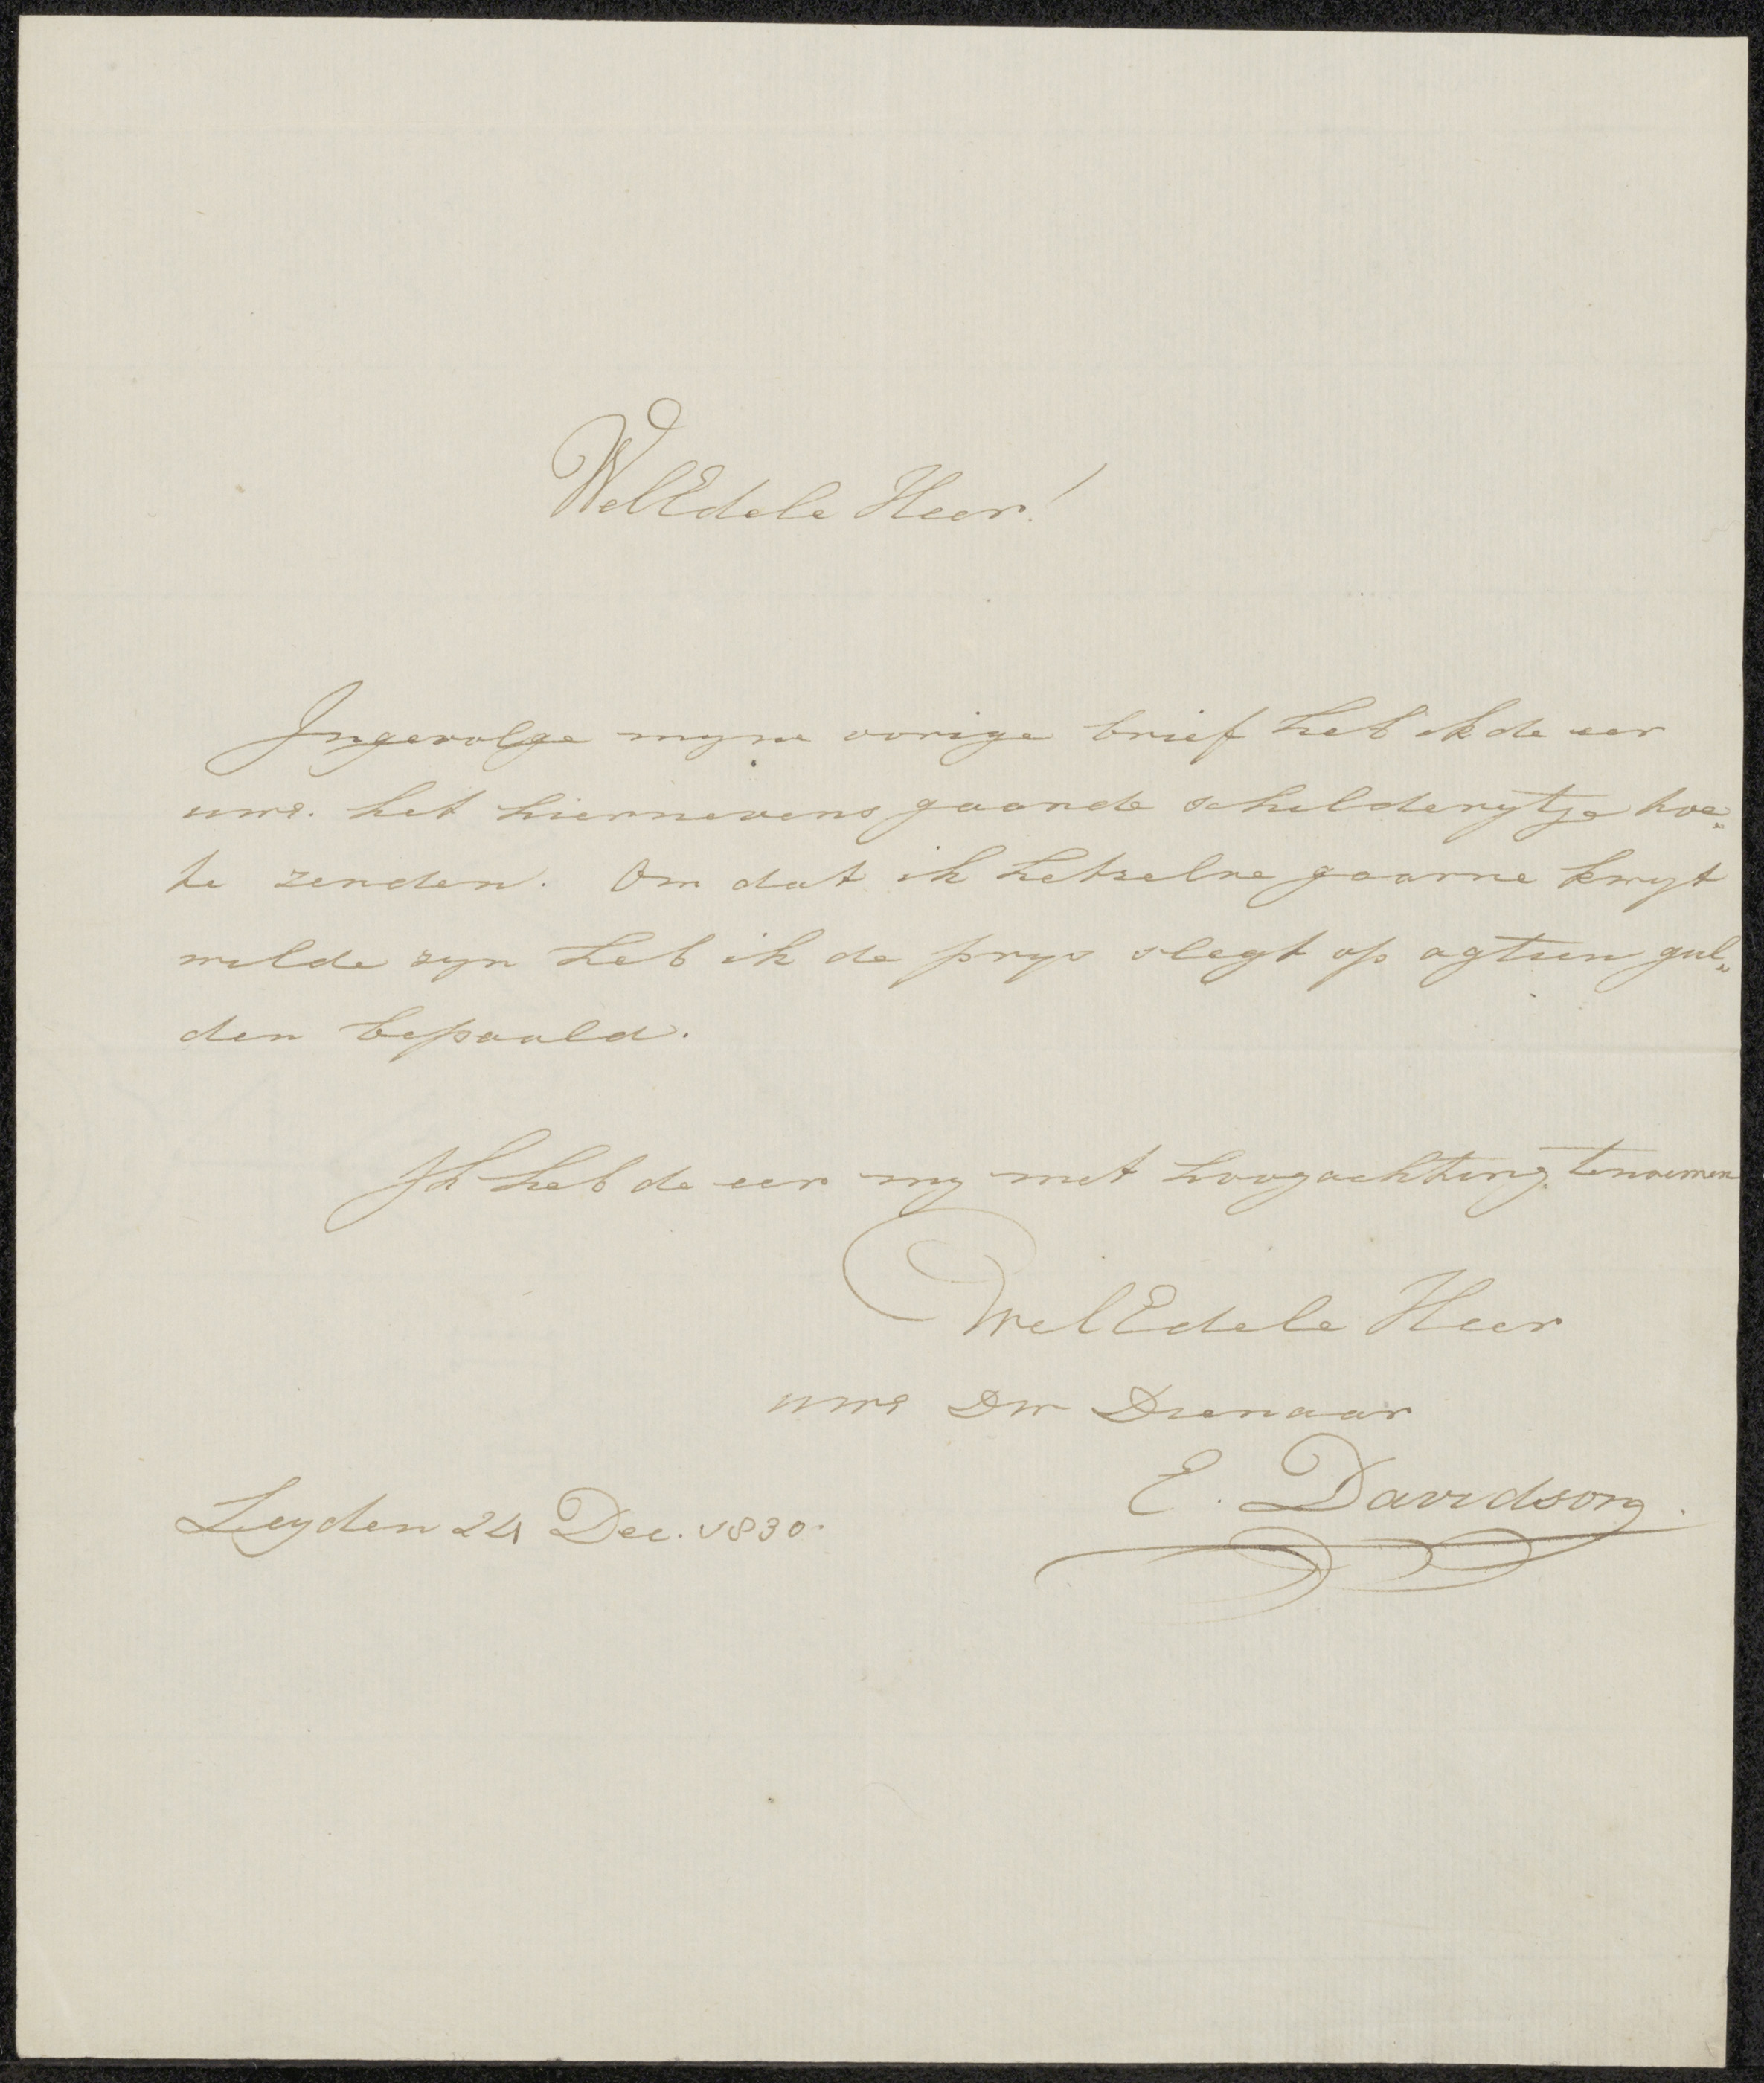 WelEdele Heer!
Ingevolge myne vorige brief heb ik de eer
uwE. het hiernevens gaande schilderytje toe„
te zenden. Om dat ik hetzelve gaarne kwyt
wilde zyn heb ik de prys slegt op agtien gul„
den bepaald.
Ik heb de eer my met hoogachting te noemen
WelEdele Heer
uwE Dw Dienaar
E. Davidson.
Leyden 24 Dec. 1830.